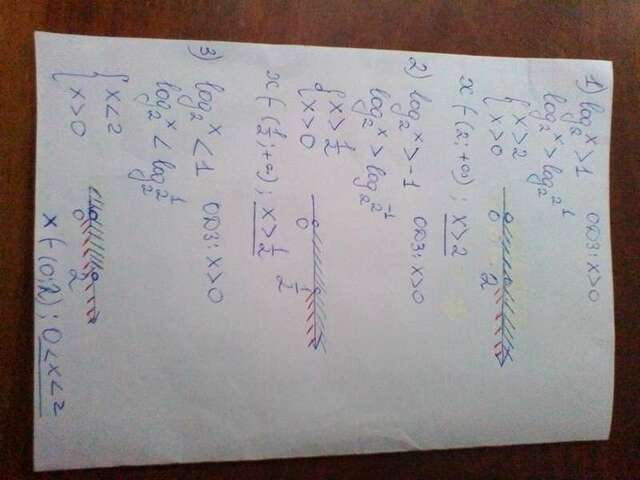 1) log₂ˣ>1 ОДЗ: x>0
log₂ˣ>log₂2¹
{ x>2
{ x>0
0 2
x ∈ (2;+∞); x>2
2) log₂ˣ>-1 ОДЗ: x>0
log₂ˣ>log₂2⁻¹
{ x>1/2
{ x>0
0 1/2
x ∈ (1/2;+∞); x>1/2
3) log₂ˣ<1 ОДЗ: x>0
log₂ˣ<log₂2¹
{ x<2
{ x>0
0 2
x ∈ (0;2); 0<x<2